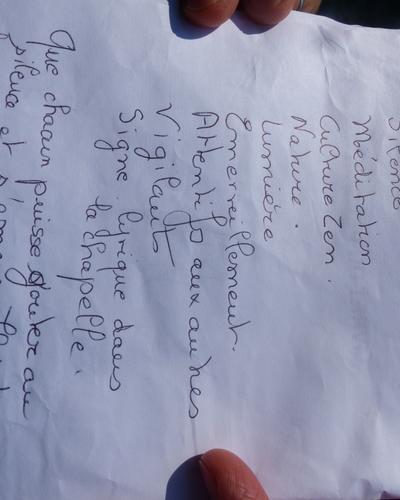 Silence
Méditation
Culture Zen.
Nature.
Lumière
Emerveillement.
Attentifs aux autres
Vigilants
Signe lyrique dans
la chapelle.
Que chacun puisse goûter au
silence et